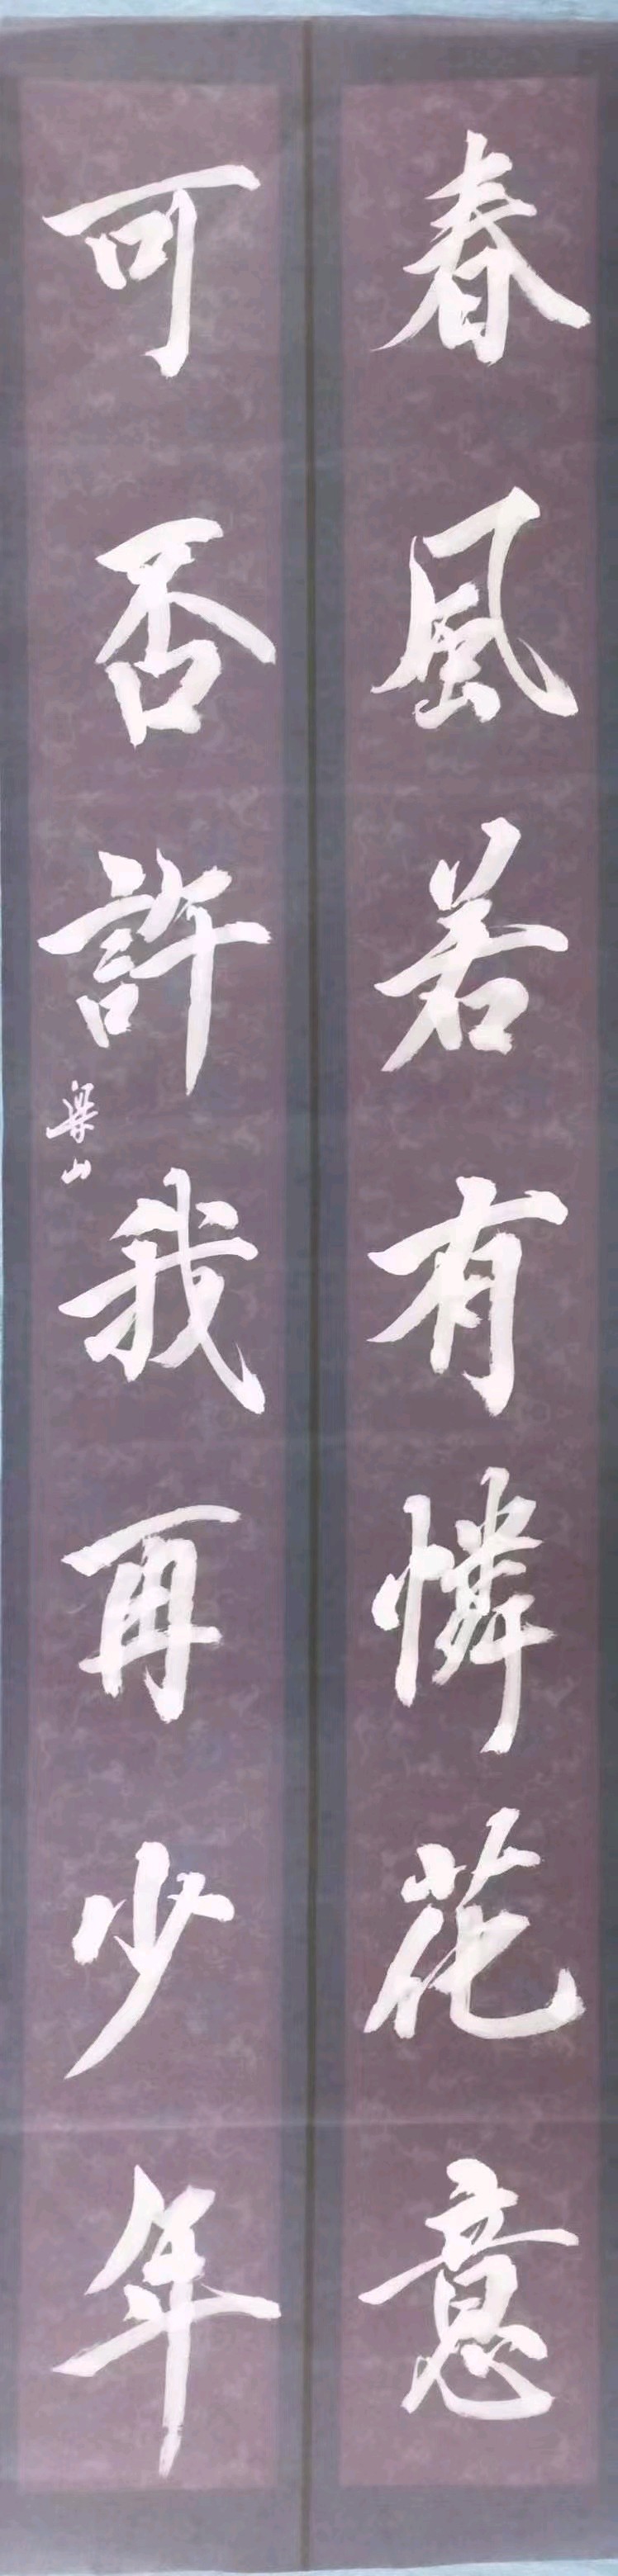 春風若有憐花意
可否許我再少年
梁山